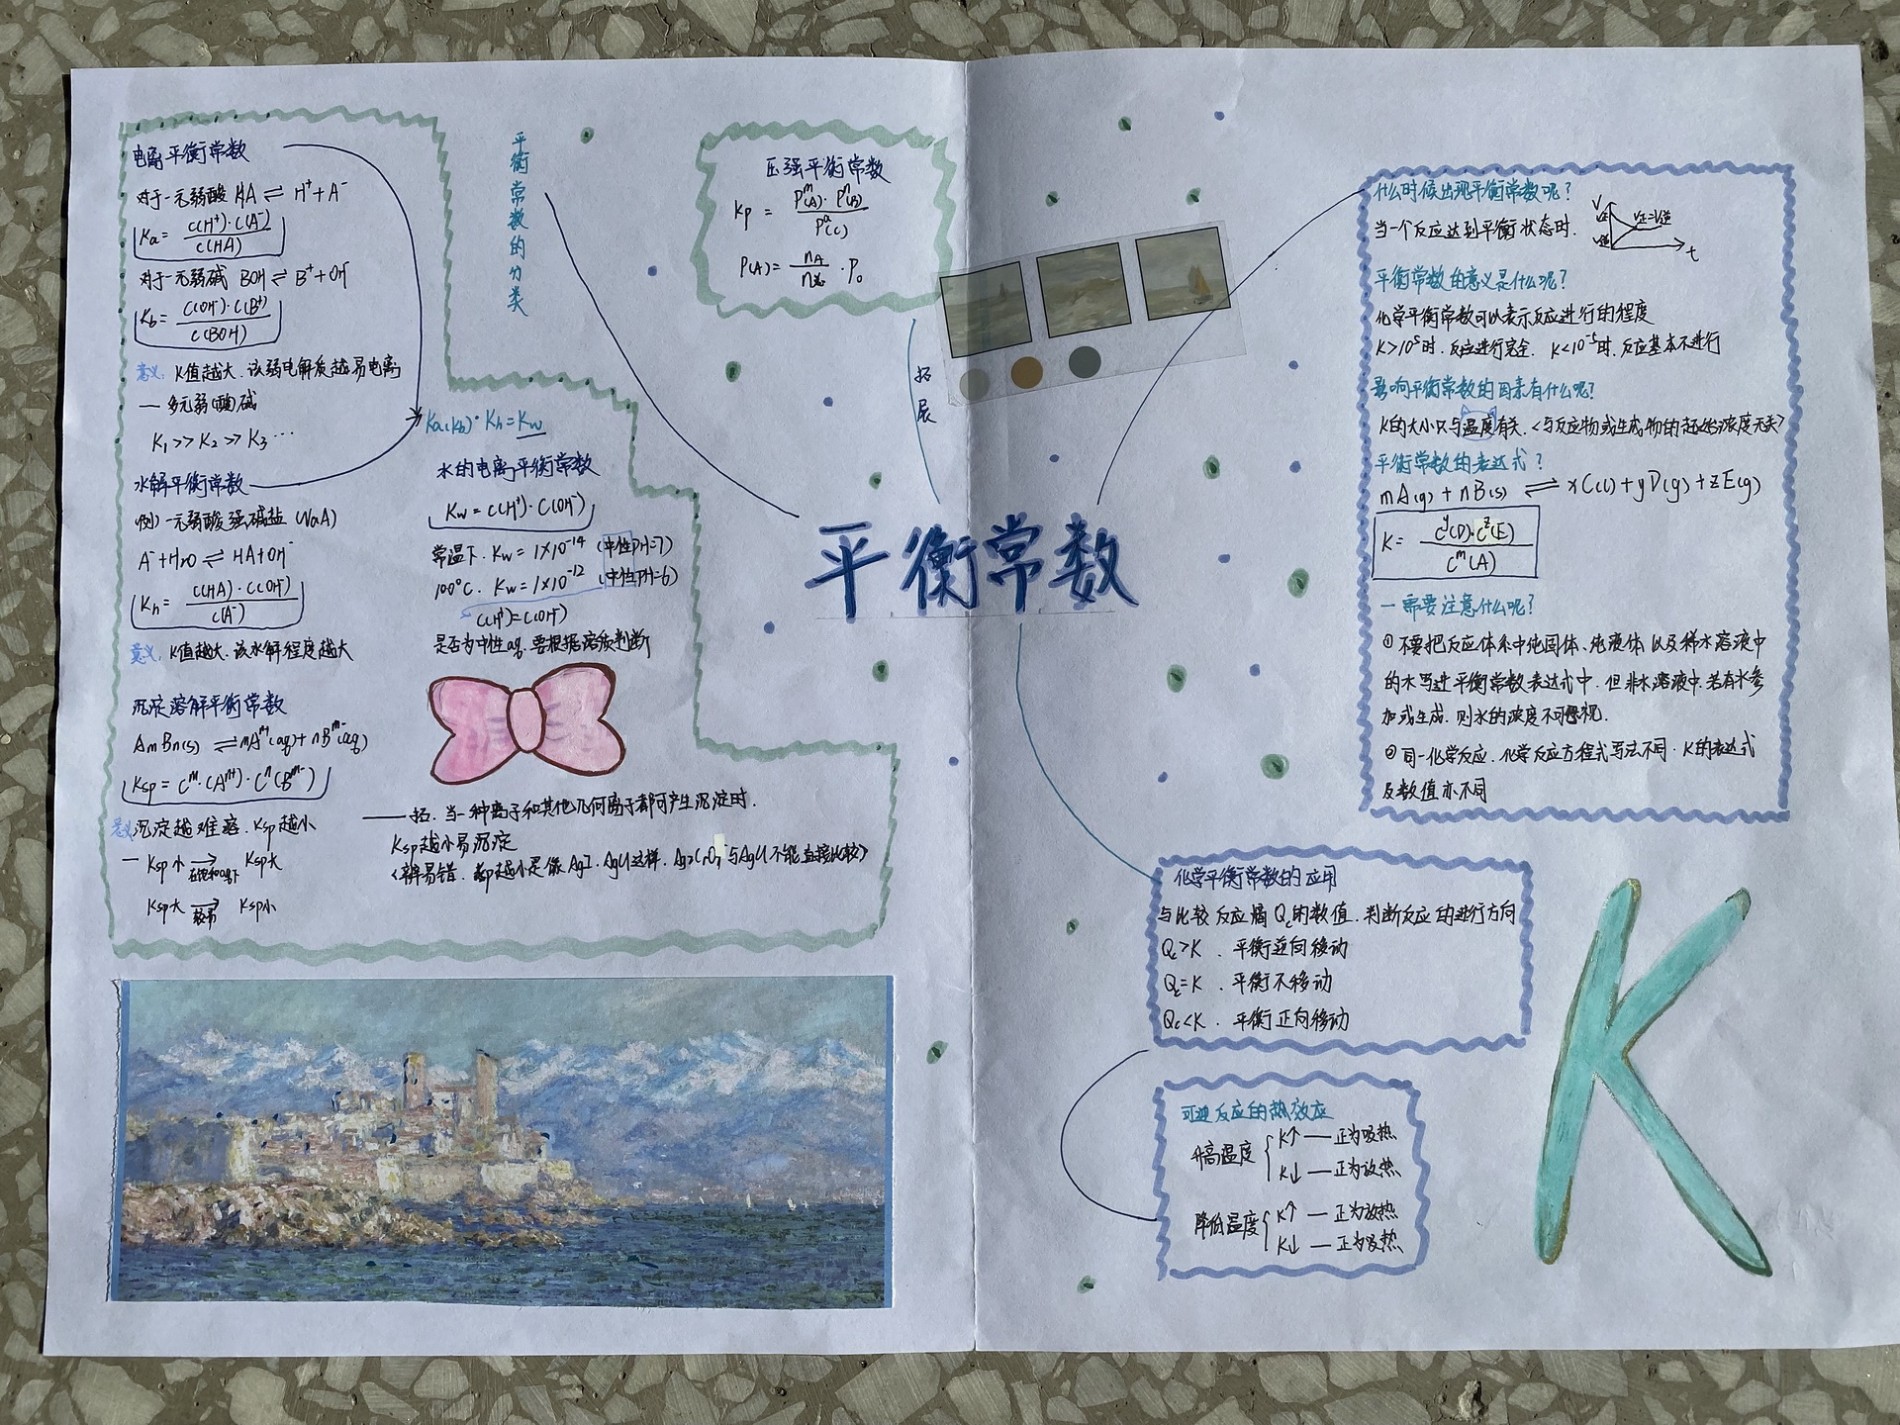 平衡常数
平衡常数的分类
电离平衡常数
对于一元弱酸 HA ⇌ H⁺ + A⁻
Ka = c(H⁺)·c(A⁻) / c(HA)
对于一元弱碱 BOH ⇌ B⁺ + OH⁻
Kb = c(OH⁻)·c(B⁺) / c(BOH)
意义: K值越大、该弱电解质越易电离
— 多元弱酸碱
K₁ >> K₂ >> K₃ …
水解平衡常数
例) 一元弱酸强碱盐 (NaA)
A⁻ + H₂O ⇌ HA + OH⁻
Kh = c(HA)·c(OH⁻) / c(A⁻)
意义: K值越大、该水解程度越大
沉淀溶解平衡常数
AmBn(s) ⇌ mAⁿ⁺(aq) + nBᵐ⁻(aq)
Ksp = cᵐ·(Aⁿ⁺)·cⁿ(Bᵐ⁻)
意义 沉淀越难溶、Ksp越小
— Ksp小 → Ksp大
Ksp大 → Ksp小
较易
Ka(Kb)·Kh = Kw
水的电离平衡常数
Kw = c(H⁺)·c(OH⁻)
常温下. Kw = 1×10⁻¹⁴ (中性PH=7)
100°C. Kw = 1×10⁻¹² (中性PH=6)
c(H⁺) = c(OH⁻)
是否为中性aq. 要根据溶质判断
—— 拓. 当一种离子和其他几何离子都可产生沉淀时.
Ksp越小易沉淀
越小是像 AgI、AgCl这样. 与AgCl不能直接比较)
压强平衡常数
Kp = Pᵐ(A)·Pⁿ(B) / Pᵃ(C)
P(A) = nA / n总 · P₀
拓展
什么时候出现平衡常数呢?
当一个反应达到平衡状态时.
V
V正
V正=V逆
V逆
t
平衡常数的意义是什么呢?
化学平衡常数可以表示反应进行的程度
K>10⁵时. 反应进行完全. K<10⁻⁵时. 反应基本不进行
影响平衡常数的因素有什么呢?
K的大小只与温度有关. <与反应物或生成物的起始浓度无关>
平衡常数的表达式?
mA(g) + nB(s) ⇌ xC(l) + yD(g) + zE(g)
K = cʸ(D)·cᶻ(E) / cᵐ(A)
— 需要注意什么呢?
① 不要把反应体系中纯固体、纯液体以及稀水溶液中
的水写进平衡常数表达式中. 但非水溶液中. 若有水参
加或生成. 则水的浓度不可忽视.
② 同一化学反应. 化学反应方程式写法不同. K的表达式
及数值亦不同
化学平衡常数的应用
与比较反应熵Qc的数值. 判断反应的进行方向
Qc>K . 平衡逆向移动
Qc=K . 平衡不移动
Qc<K . 平衡正向移动
可逆反应的热效应
升高温度 { K↑ — 正为吸热
K↓ — 正为放热
降低温度 { K↑ — 正为放热
K↓ — 正为吸热
K